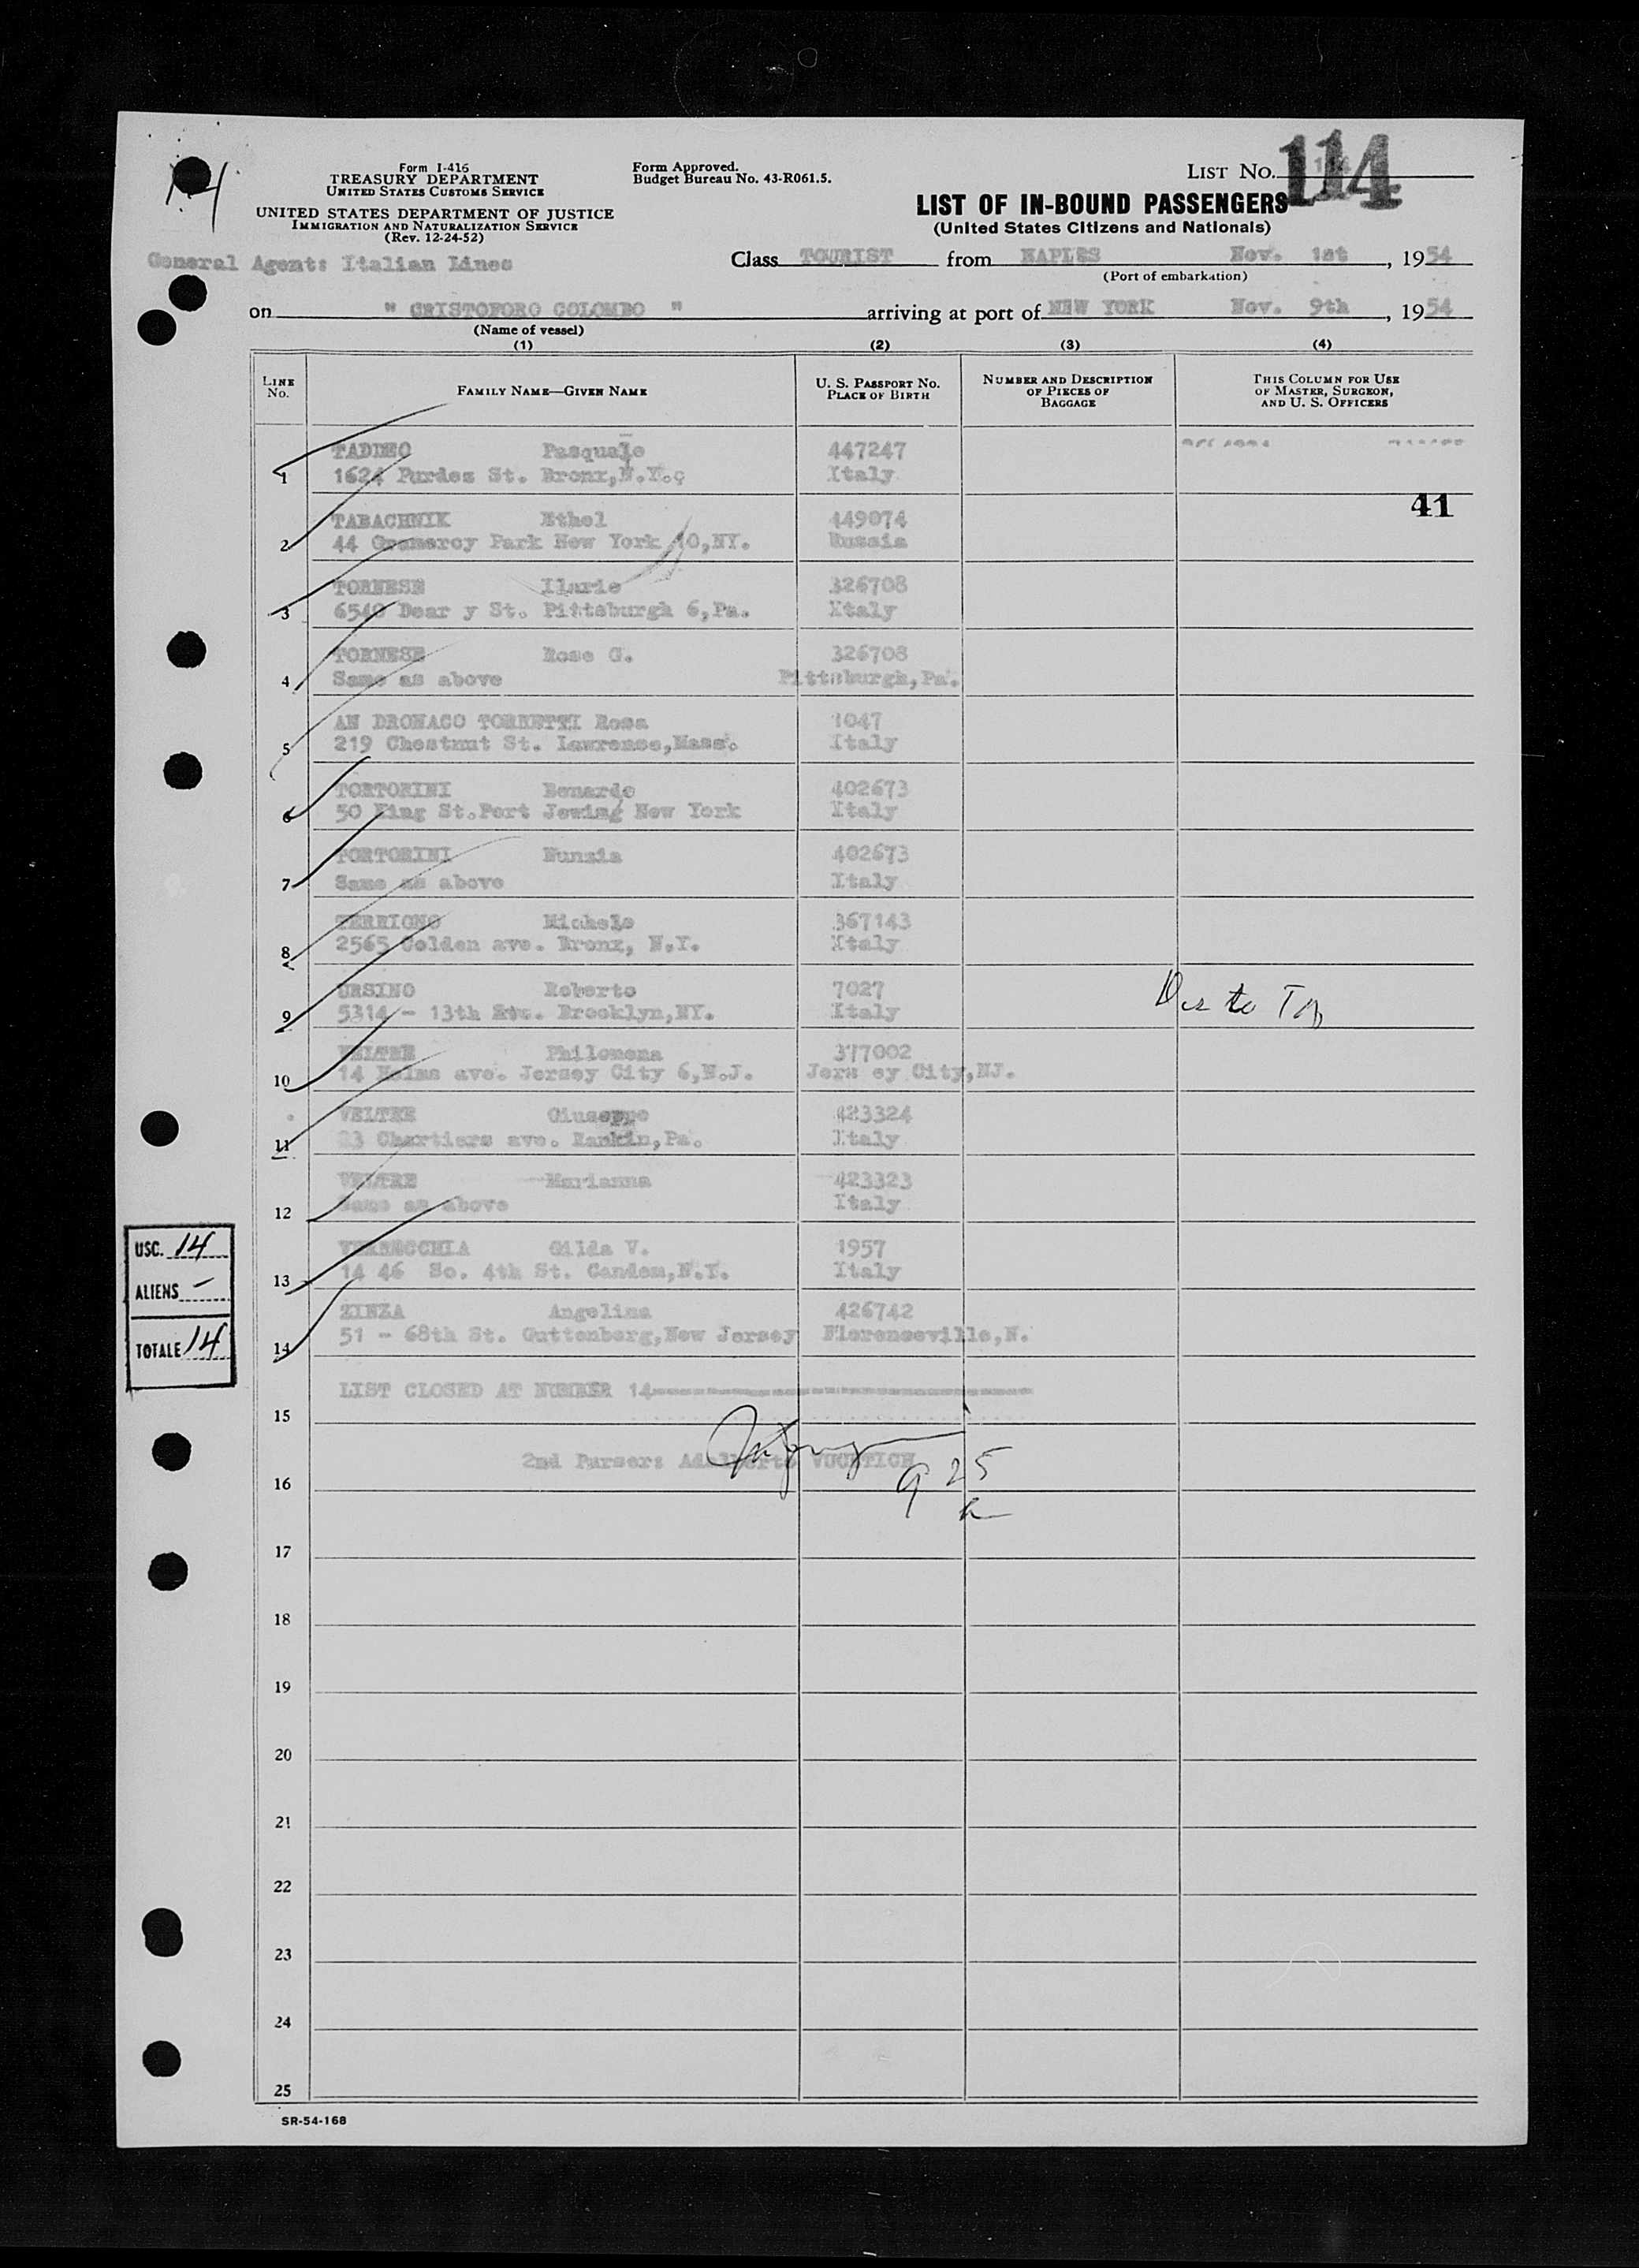 14
Form I-416
TREASURY DEPARTMENT
UNITED STATES CUSTOMS SERVICE
UNITED STATES DEPARTMENT OF JUSTICE
IMMIGRATION AND NATURALIZATION SERVICE
(Rev. 12-24-52)
Form Approved.
Budget Bureau No. 43-R061.5.
LIST NO. 114
LIST OF IN-BOUND PASSENGERS
(United States Citizens and Nationals)
General Agent: Italian Lines
Class TOURIST from NAPLES Nov. 1st, 1954
(Port of embarkation)
on " CRISTOFORO COLOMBO " arriving at port of NEW YORK Nov. 9th, 1954
(Name of vessel)
(1) (2) (3) (4)
LINE No. FAMILY NAME—GIVEN NAME U. S. PASSPORT NO. PLACE OF BIRTH NUMBER AND DESCRIPTION OF PIECES OF BAGGAGE THIS COLUMN FOR USE OF MASTER, SURGEON, AND U. S. OFFICERS
TADDEO Pasquale 447247
1 1624 Purdez St. Bronx, N.Y. Italy
41
TABACHNIK Ethel 449074
2 44 Gramercy Park New York 10,NY. Russia
TORNESE Ilario 326708
3 6540 Dear y St. Pittsburgh 6,Pa. Italy
TORNESE Rose G. 326708
4 Same as above Pittsburgh,Pa.
AN DRONACO TORNETTI Rosa 1047
5 219 Chestnut St. Lawrense,Mass. Italy
TORTORINI Benardo 402673
6 50 King St.Port Jewing New York Italy
TORTORINI Nunzia 402673
7 Same as above Italy
TERRIONO Michele 367143
8 2565 Golden ave. Bronx, N.Y. Italy
URSINO Roberto 7027
9 5314 - 13th Brooklyn,NY. Italy
VELTRE Philomena 377002
10 14 Helms ave. Jersey City 6,N.J. Jers ey City,NJ.
VELTRE Giuseppe 423324
11 23 Chartiers ave. Rankin,Pa. Italy
VELTRE Marianna 423323
12 Same as above Italy
VERNOCCHIA Gilda V. 1957
13 14 46 So. 4th St. Camdem,N.Y. Italy
ZINZA Angelina 426742
14 51 - 68th St. Guttenberg,New Jersey Florenseville,N.
USC. 14
ALIENS -
TOTALE 14
LIST CLOSED AT NUMBER 14
15
2nd Purser: Adalberto VUCETICH
925
a
16
17
18
19
20
21
22
23
24
25
SR-54-168